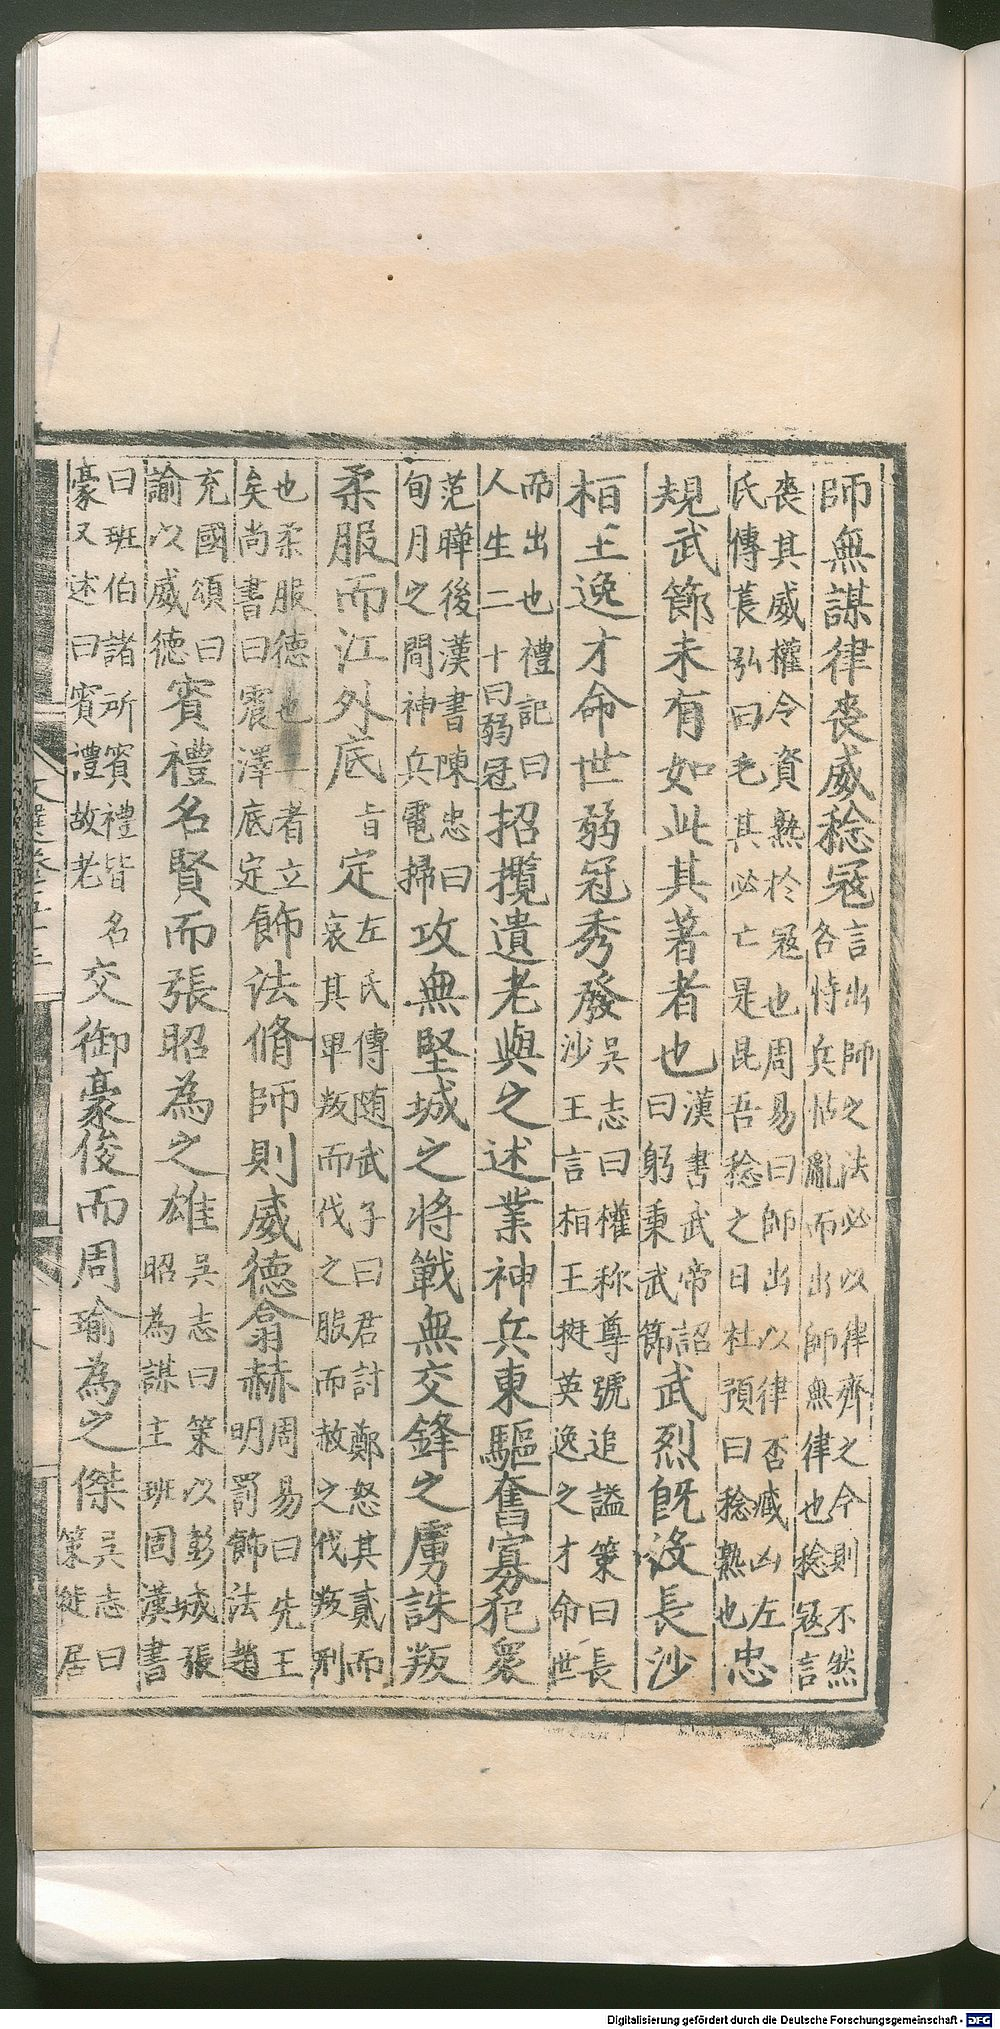 師無謀律喪威稔寇言出師之法必以律齊之今則不然各恃兵怙亂而出師無律也稔寇言
喪其威權令資熟於寇也周易曰師出以律否臧凶左氏傳萇弘曰毛其必亡是昆吾稔之日杜預曰稔熟也忠
規武節未有如此其著者也漢書武帝詔曰躬秉武節武烈旣没長沙
桓王逸才命世弱冠秀發吳志曰權称尊號追謚策曰長沙王言桓王挺英逸之才命世
而出也禮記曰人生二十曰弱冠招攬遺老與之述業神兵東驅奮寡犯衆
范曄後漢書陳忠曰旬月之間神兵電掃攻無堅城之將戰無交鋒之虜誅叛
柔服而江外底旨定左氏傳随武子曰君討鄭怒其貳而哀其卑叛而伐之服而赦之伐叛刑
也柔服德也二者立矣尚書曰震澤底定飾法脩師則威德翕赫周易曰先王明罰飾法趙
充國頌曰諭以威德賓禮名賢而張昭為之雄吳志曰策以彭城張昭為謀主班固漢書
曰班伯諸所賓禮皆名豪又述曰賓禮故老交御豪俊而周瑜為之傑吳志曰策徙居
文選卷五十三
Digitalisierung gefördert durch die Deutsche Forschungsgemeinschaft - DFG